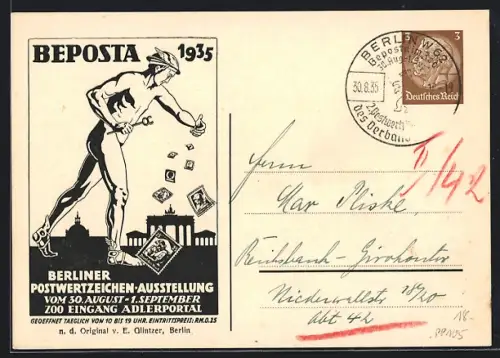 BEPOSTA 1935
BERLINER
POSTWERTZEICHEN-AUSSTELLUNG
VOM 30. AUGUST - 1. SEPTEMBER
ZOO EINGANG ADLERPORTAL
GEOEFFNET TAEGLICH VON 10 BIS 19 UHR. EINTRITTSPREIS: RM.0.25
n. d. Original v. E. Glintzer, Berlin
BERLIN W 62
Beposta
30. Aug.
30.8.35
2. Postwert
des Verban
3 3
Deutsches Reich
Herrn
Max Pliske
Reichsbank-Girokontor
Niederwallstr 18/20
Abt 42
II/42
18.-